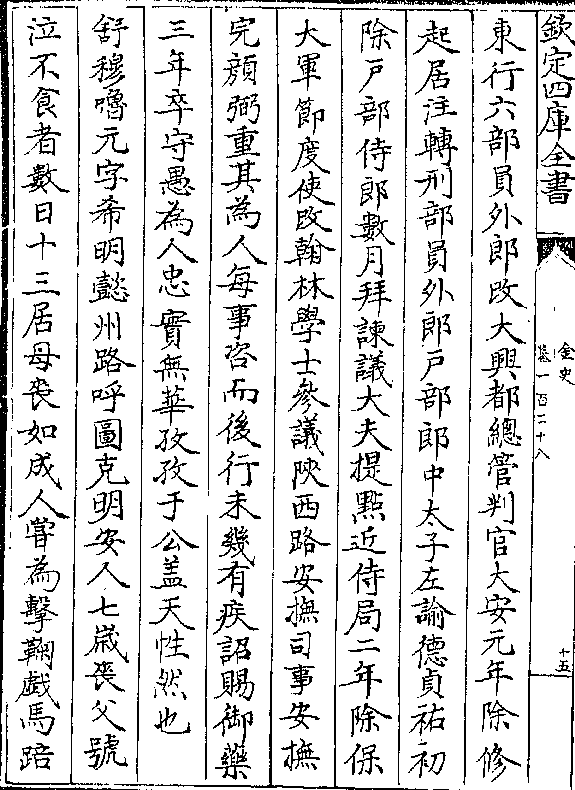 欽定四庫全書
金史
卷一百二十八
十五
東行六部員外郎改大興都總管判官大安元年除修
起居注轉刑部員外郎戶部郎中太子左諭德貞祐初
除戶部侍郎數月拜諫議大夫提點近侍局二年除保
大軍節度使改翰林學士參議陜西路安撫司事安撫
完顔弼重其為人每事咨而後行未幾有疾詔賜御藥
三年卒守愚為人忠實無華孜孜于公盖天性然也
舒穆嚕元字希明懿州路呼圖克明安人七歳喪父號
泣不食者數日十三居母喪如成人嘗為擊鞠戯馬踣